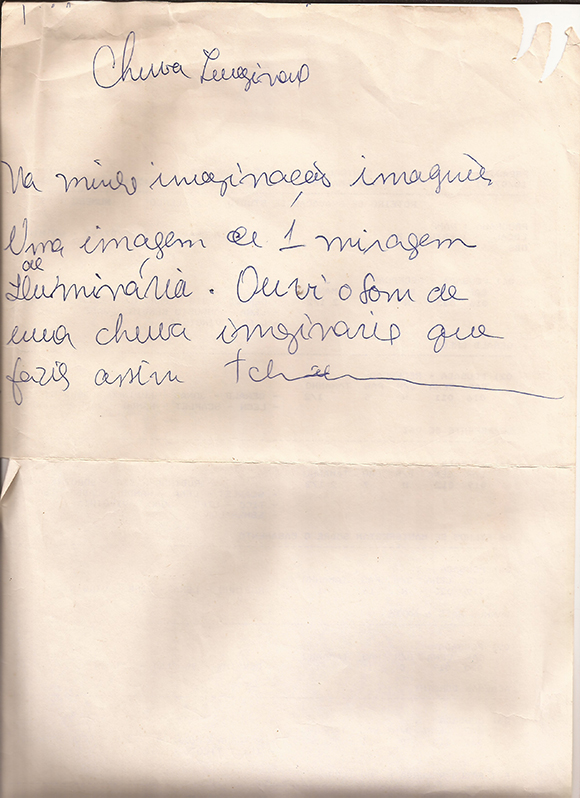 Chuva Imaginaria
Na minha imaginação imaginei
Uma imagem de 1 miragem
de
Iluminária. Ouvi o som de
uma chuva imaginaria que
fazia assim tchae